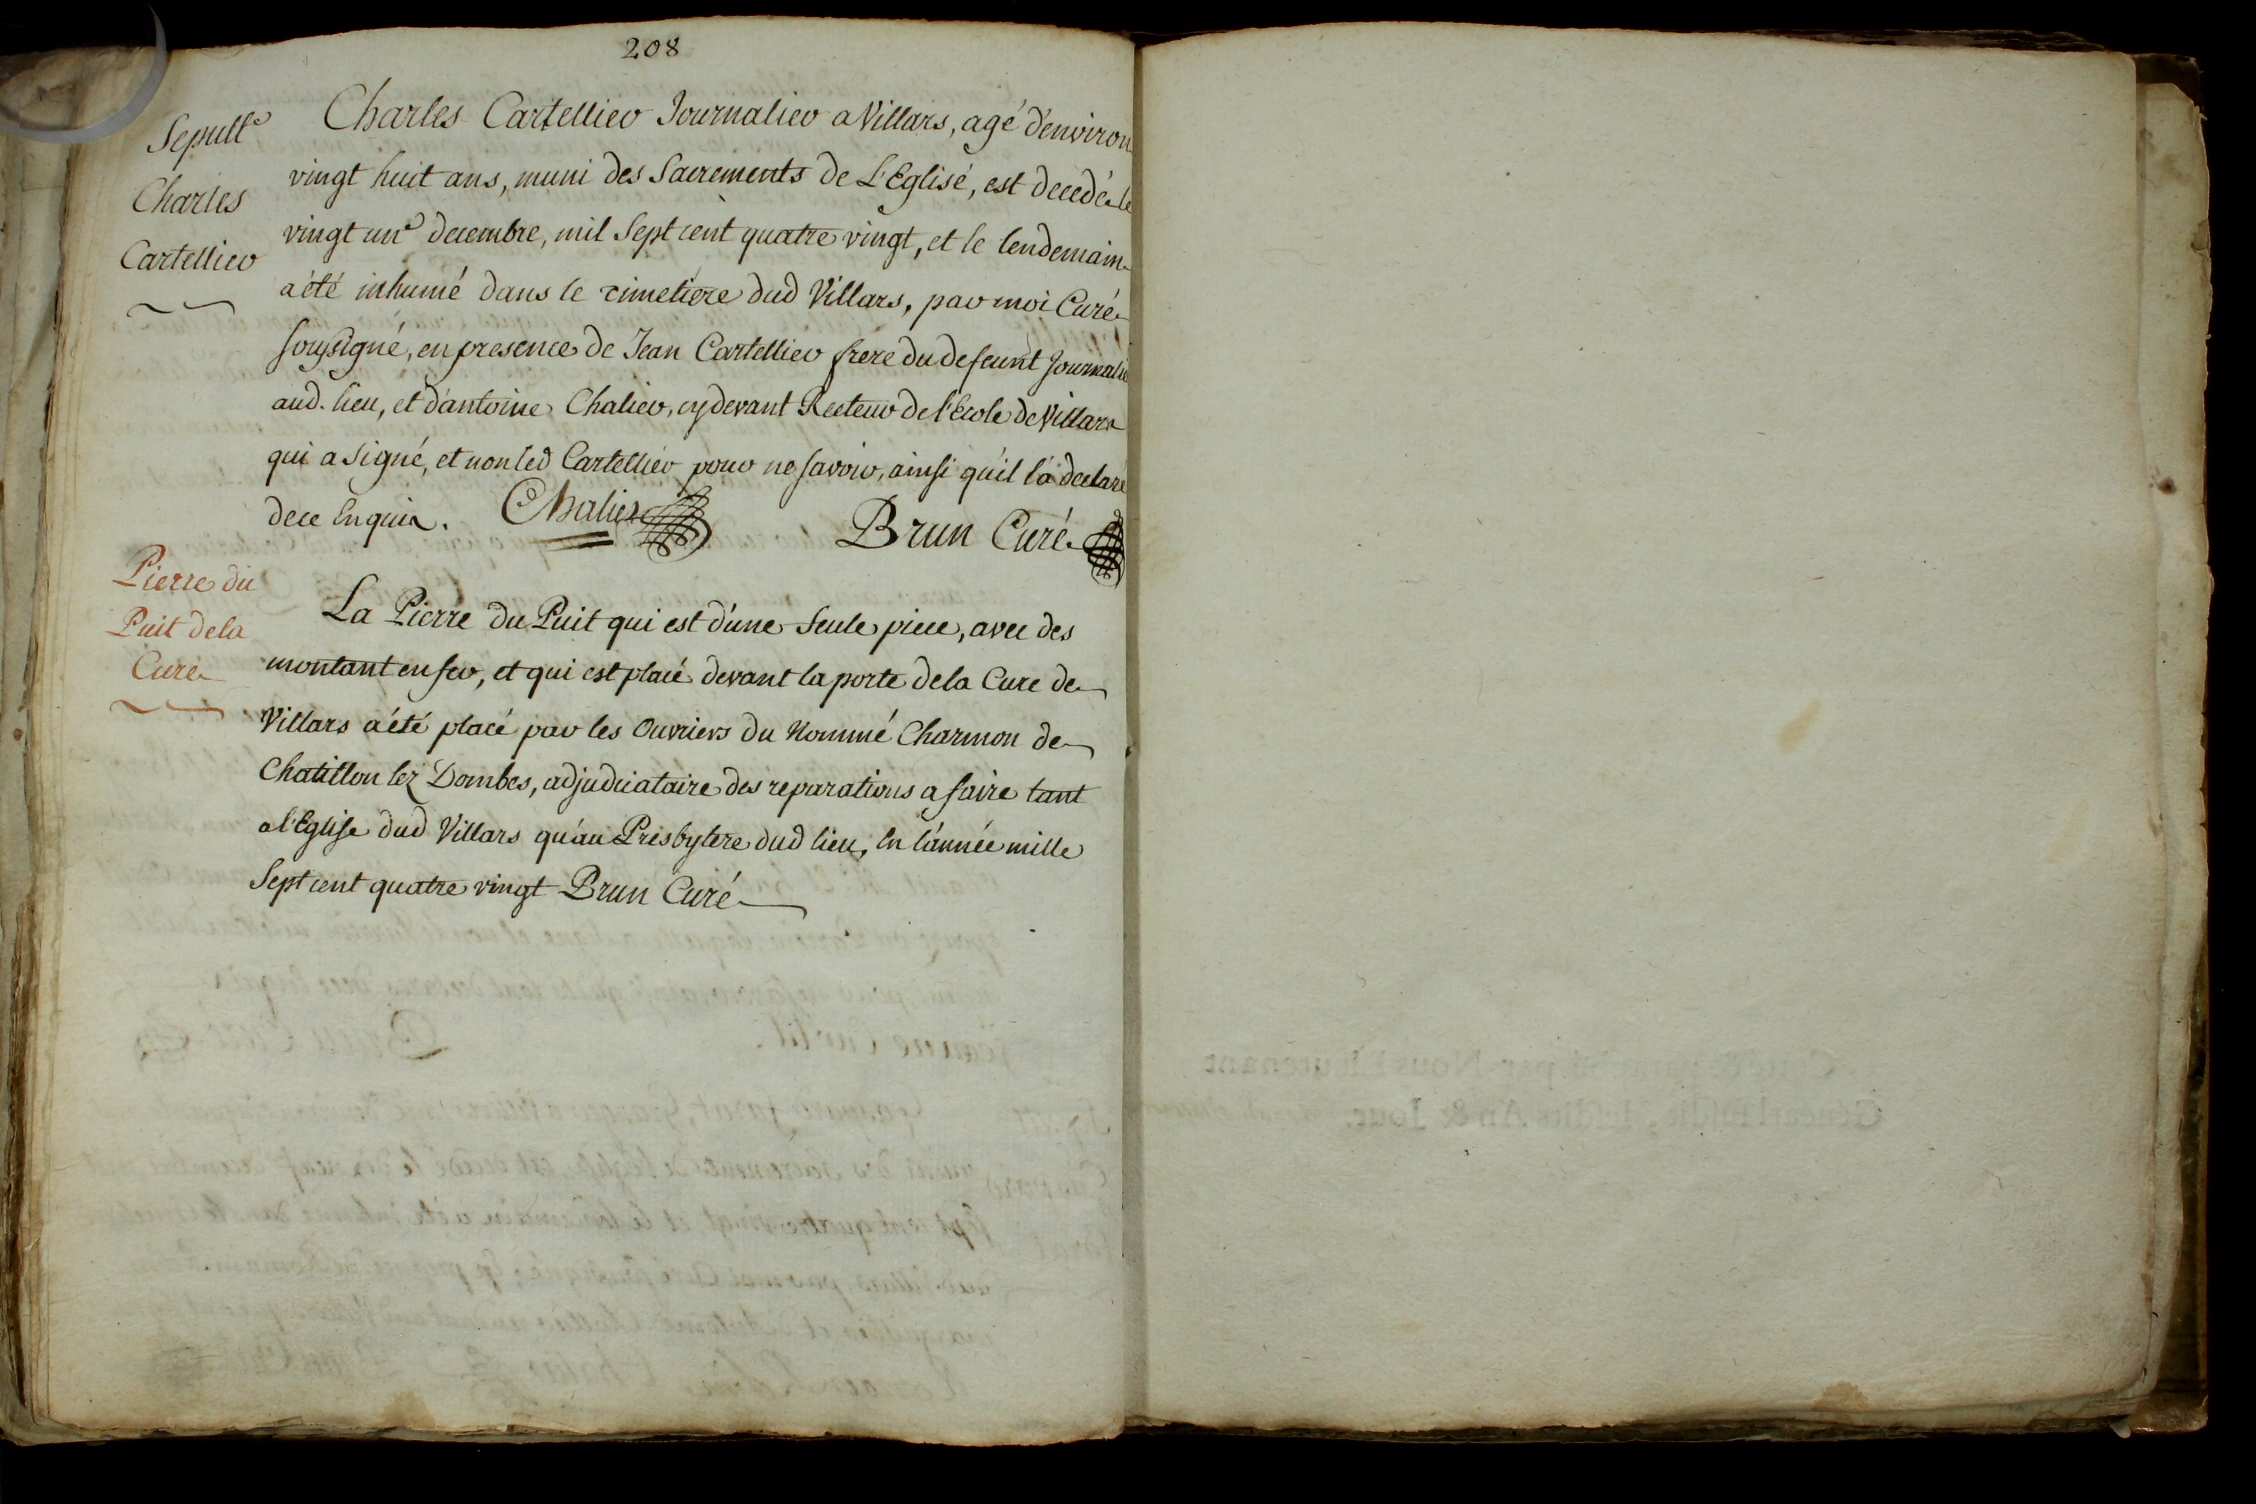 208
Sepult.e
Charles
Cartellier
Charles Cartellier Journalier a Villars, agé d'environ
vingt huit ans, muni des Sacrements de L'Eglisé, est decedé le
vingt un.e decembre, mil Sept cent quatre vingt, et le lendemain
a été inhumé dans le cimetiere dud Villars, par moi Curé
soussigné, en presence de Jean Cartellier frere du defeunt Journalie
aud. lieu, et d'antoine Chalier, cy devant Recteur de l'Ecole de Villars
qui a signé, et non led Cartellier pour ne savoir, ainsi qu'il l'a declaré
de ce Enquis. Chalier Brun Curé
Pierre du
Puit de la
Cure
La Pierre du Puit qui est d'une Seule piece, avec des
montant en fer, et qui est placé devant la porte de la Cure de
Villars a été placé par les Ouvriers du Nommé Charmon de
Chatillon lez Dombes, adjudicataire des reparations a faire tant
a l'Eglise dud Villars qu'au Presbytere dud lieu, En l'année mille
Sept cent quatre vingt Brun Curé